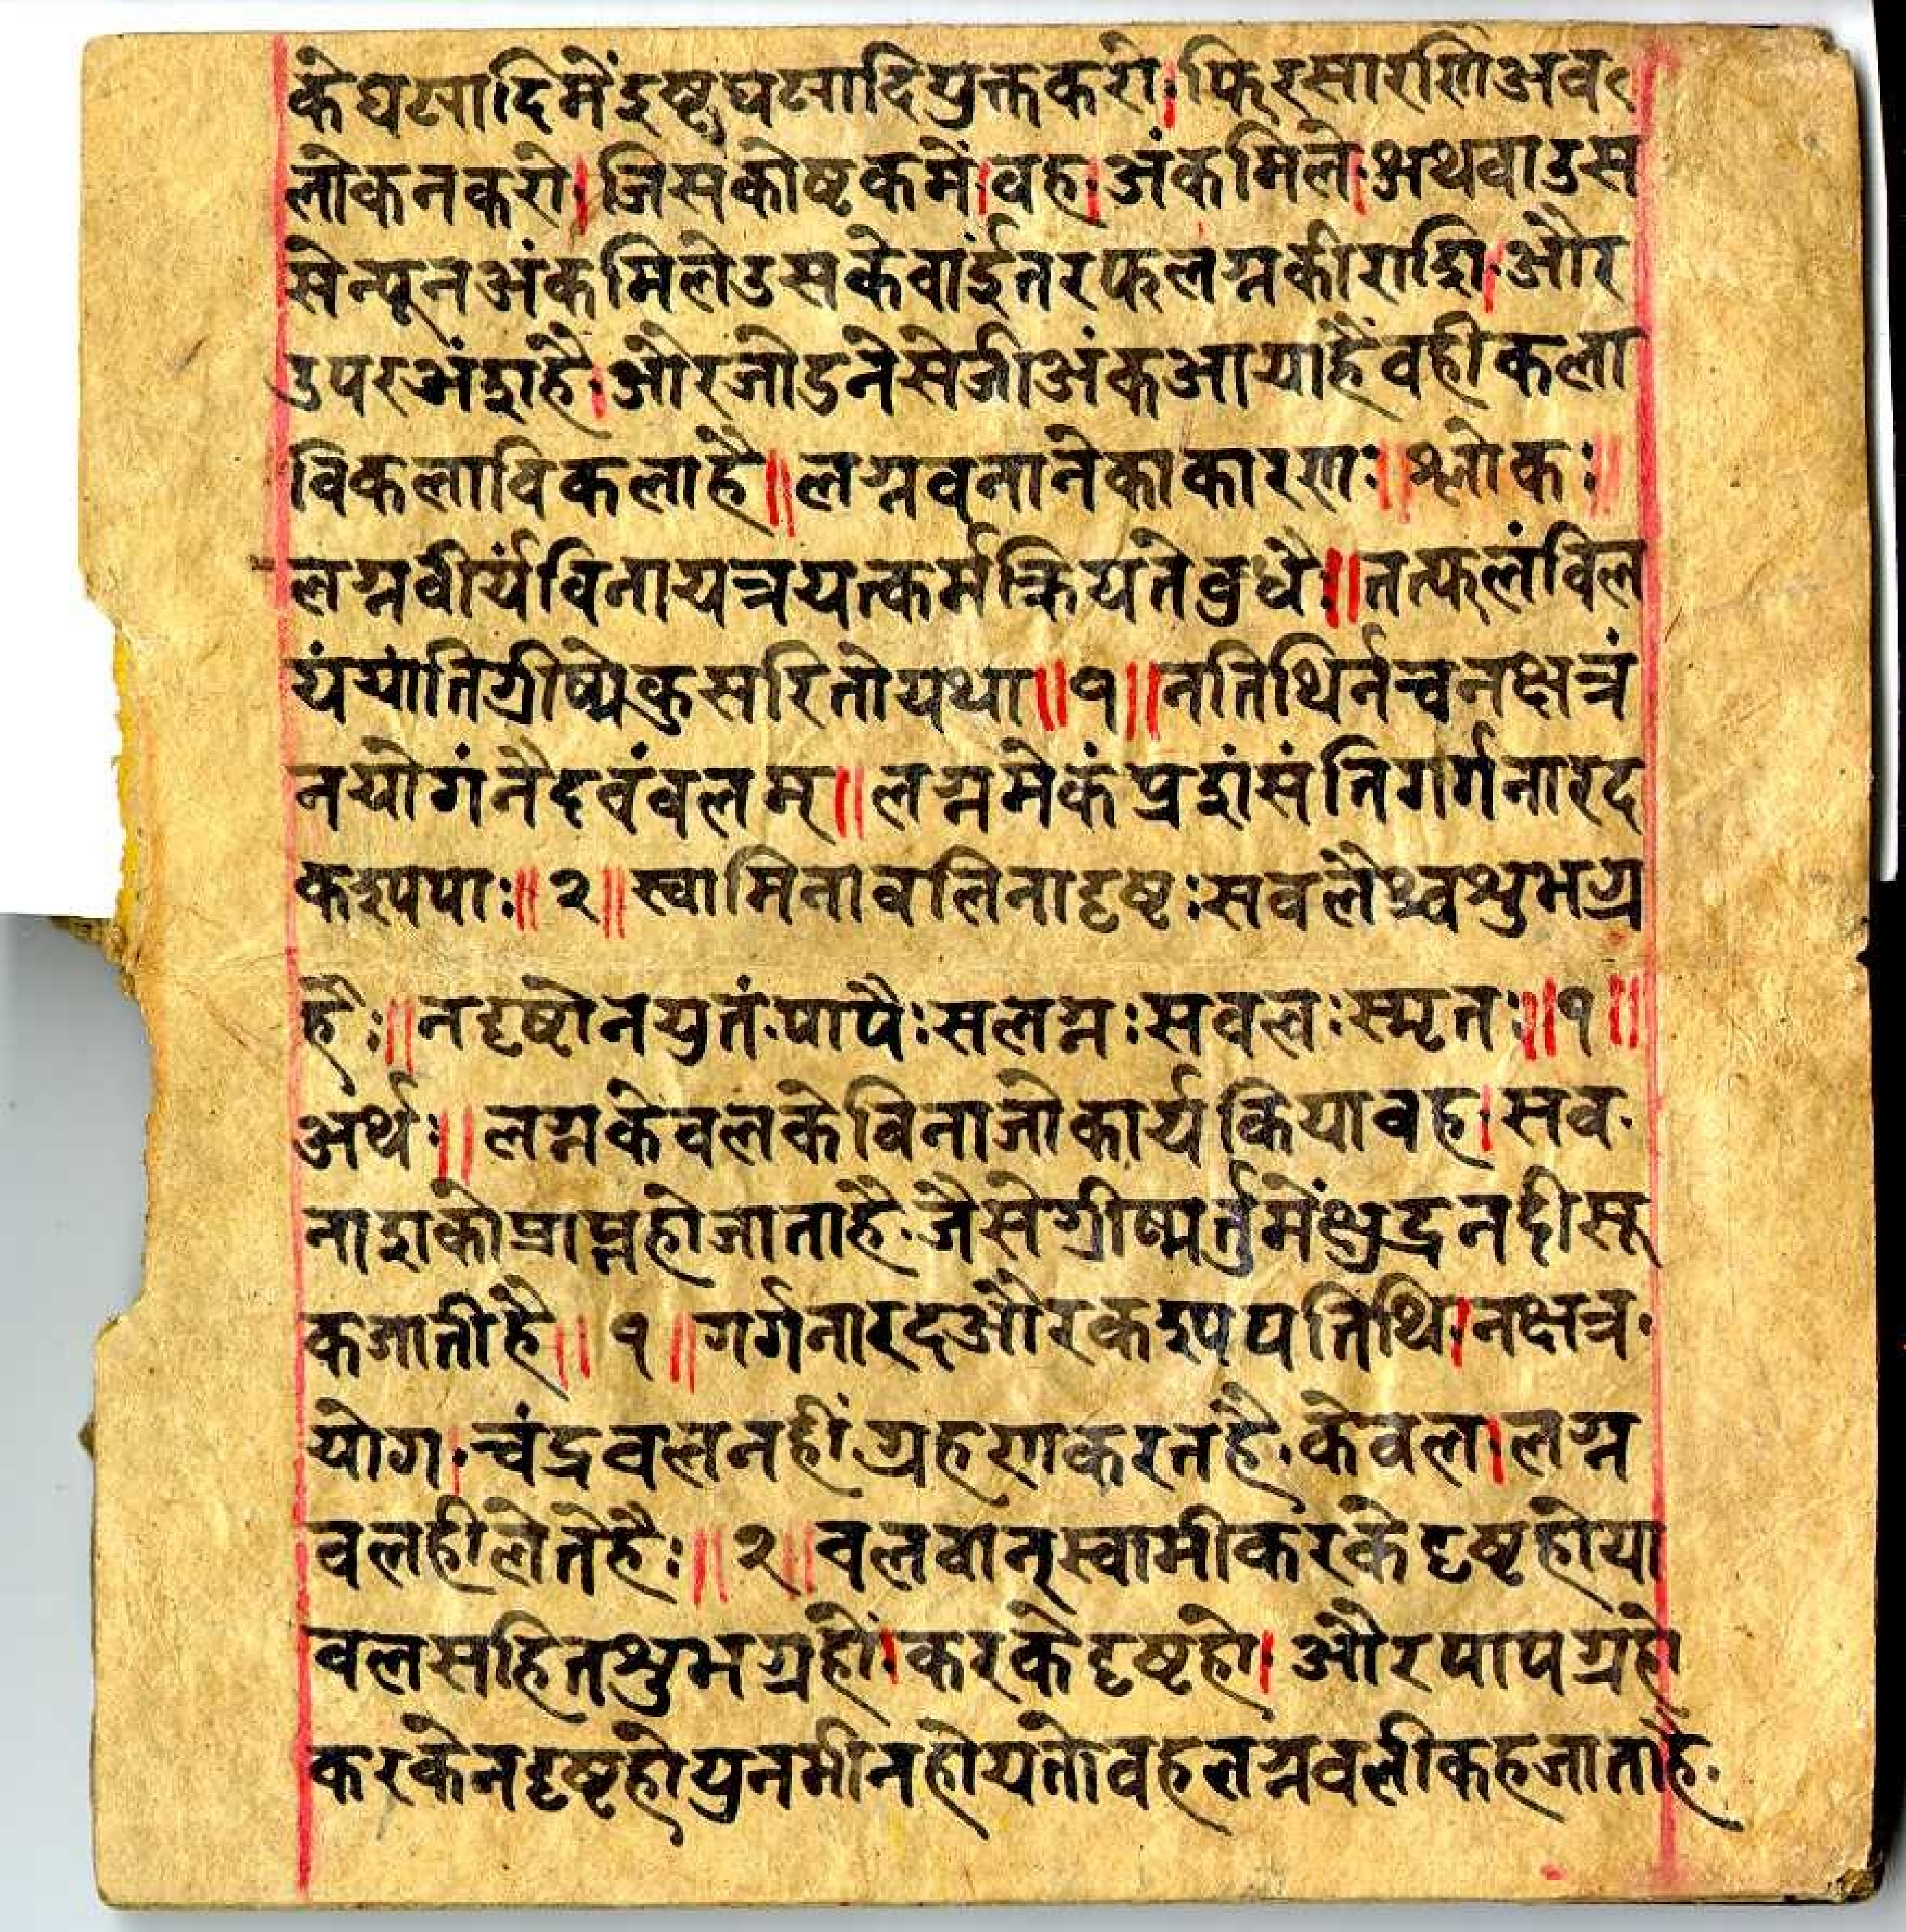 के घट्यादि में इष्ट घट्यादि युक्त करो। फिर सारणि अव
लोकन करो। जिस कोष्टक में। वह। अंक मिले। अथवा उस
से न्यून अंक मिले उस के वांई तरफ लग्न की राशि। और
उपर अंश है। और जोडने से जी अंक आया है वही कला
विकला विकला है॥ लग्न वनाने का कारणः॥ श्लोकः॥
लग्नवीर्यं विना यत्र यत्कर्म क्रियते वुधैः॥ तत्फलं विल
यं याति ग्रीष्मे कुसरितो यथा॥ १॥ न तिथिर्न च नक्षत्रं
न योगं नैदवं वलम्॥ लग्नमेकं प्रशंसंति गर्गनारद
कश्यपाः॥ २॥ स्वामिना वलिना दृष्टः सवलैश्च शुभग्र
हैः॥ न दृष्टो न युतं पापैः स लग्नः सवलः स्मृतः॥ १॥
अर्थः॥ लग्न के वल के विना जो कार्य किया वह। सव
नाश को प्राप्त हो जाता है. जैसे ग्रीष्मर्तु में क्षुद्र नदी सू
क जाती है॥ १॥ गर्ग नारद और कश्यप तिथि। नक्षत्र.
योग। चंद्रवल नहीं ग्रहण करत है. केवल। लग्न
वल ही लेते हैः॥ २॥ वलवान् स्वामी करके दृष्ट हो या
वल सहित शुभग्रहों। करके दृष्ट हो। और पापग्रहो
करके न दृष्ट हो युत भी न होय तो वह लग्न वली कह जाता है.